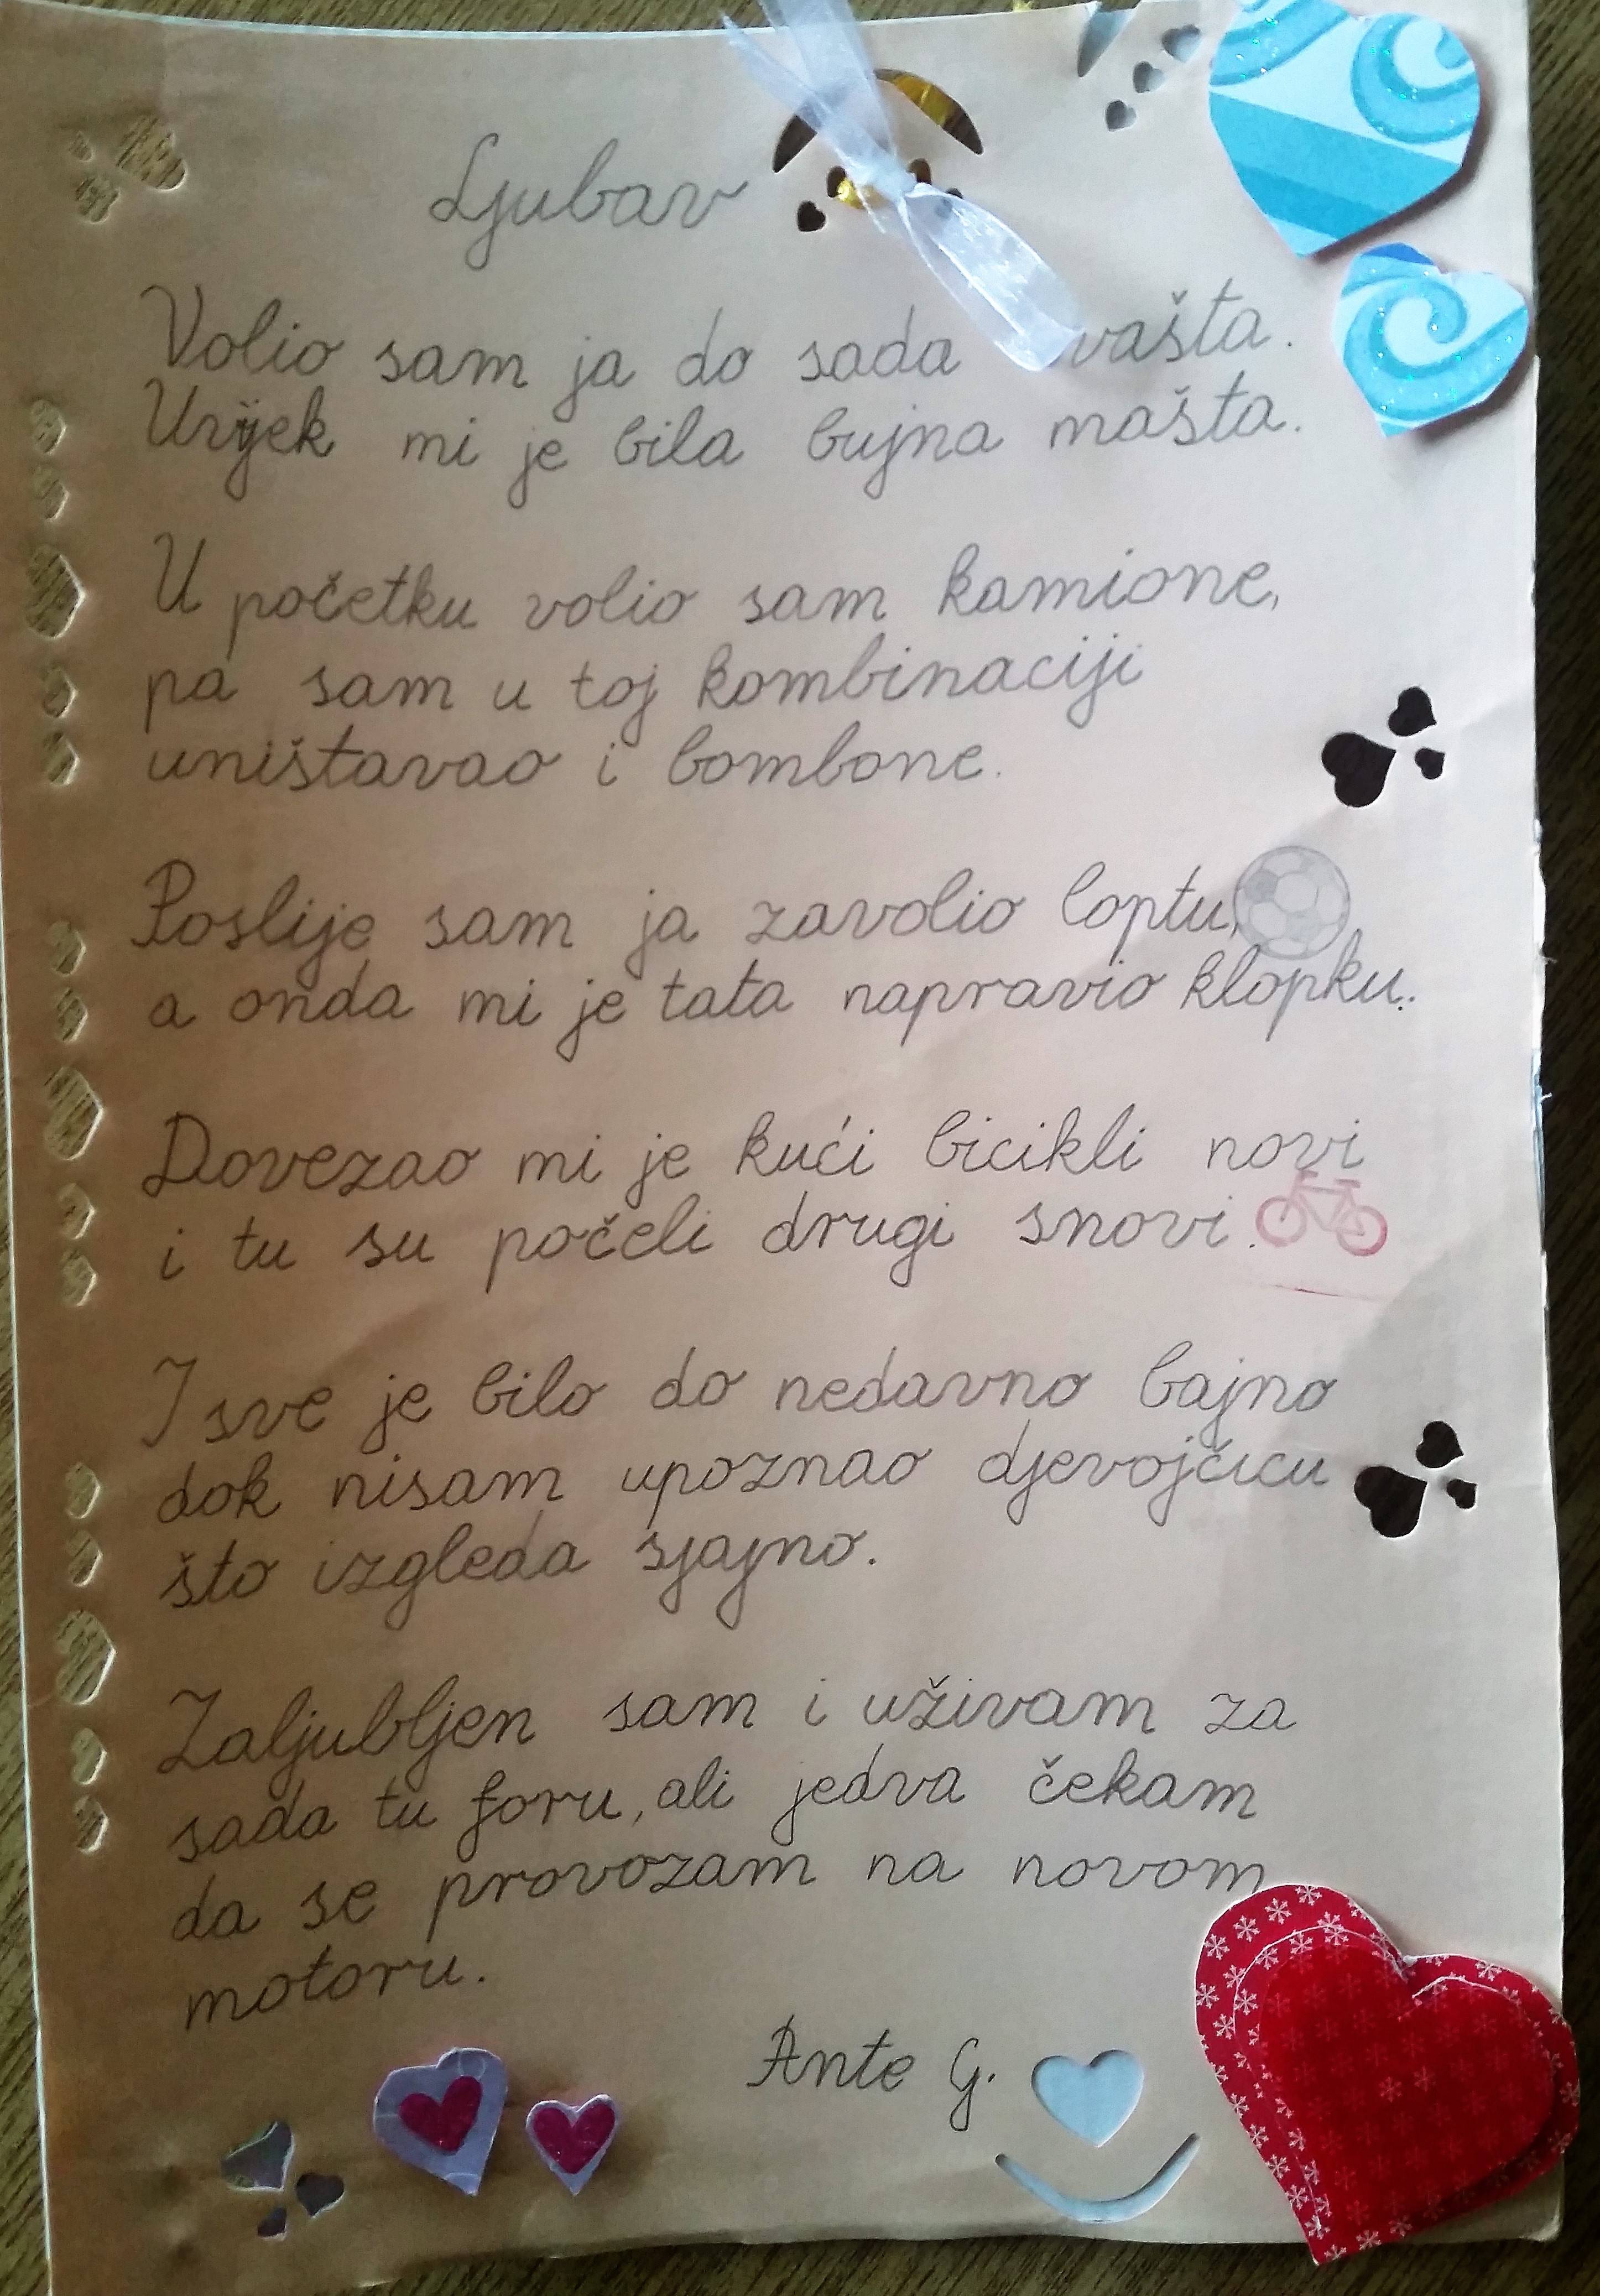 Ljubav
Volio sam ja do sada svašta.
Uvijek mi je bila bujna mašta.
U početku volio sam kamione,
pa sam u toj kombinaciji
uništavao i bombone.
Poslije sam ja zavolio loptu,
a onda mi je tata napravio klopku:
Dovezao mi je kući bicikli novi
i tu su počeli drugi snovi.
I sve je bilo do nedavno bajno
dok nisam upoznao djevojčicu
što izgleda sjajno.
Zaljubljen sam i uživam za
sada tu foru, ali jedva čekam
da se provozam na novom
motoru.
Ante G.